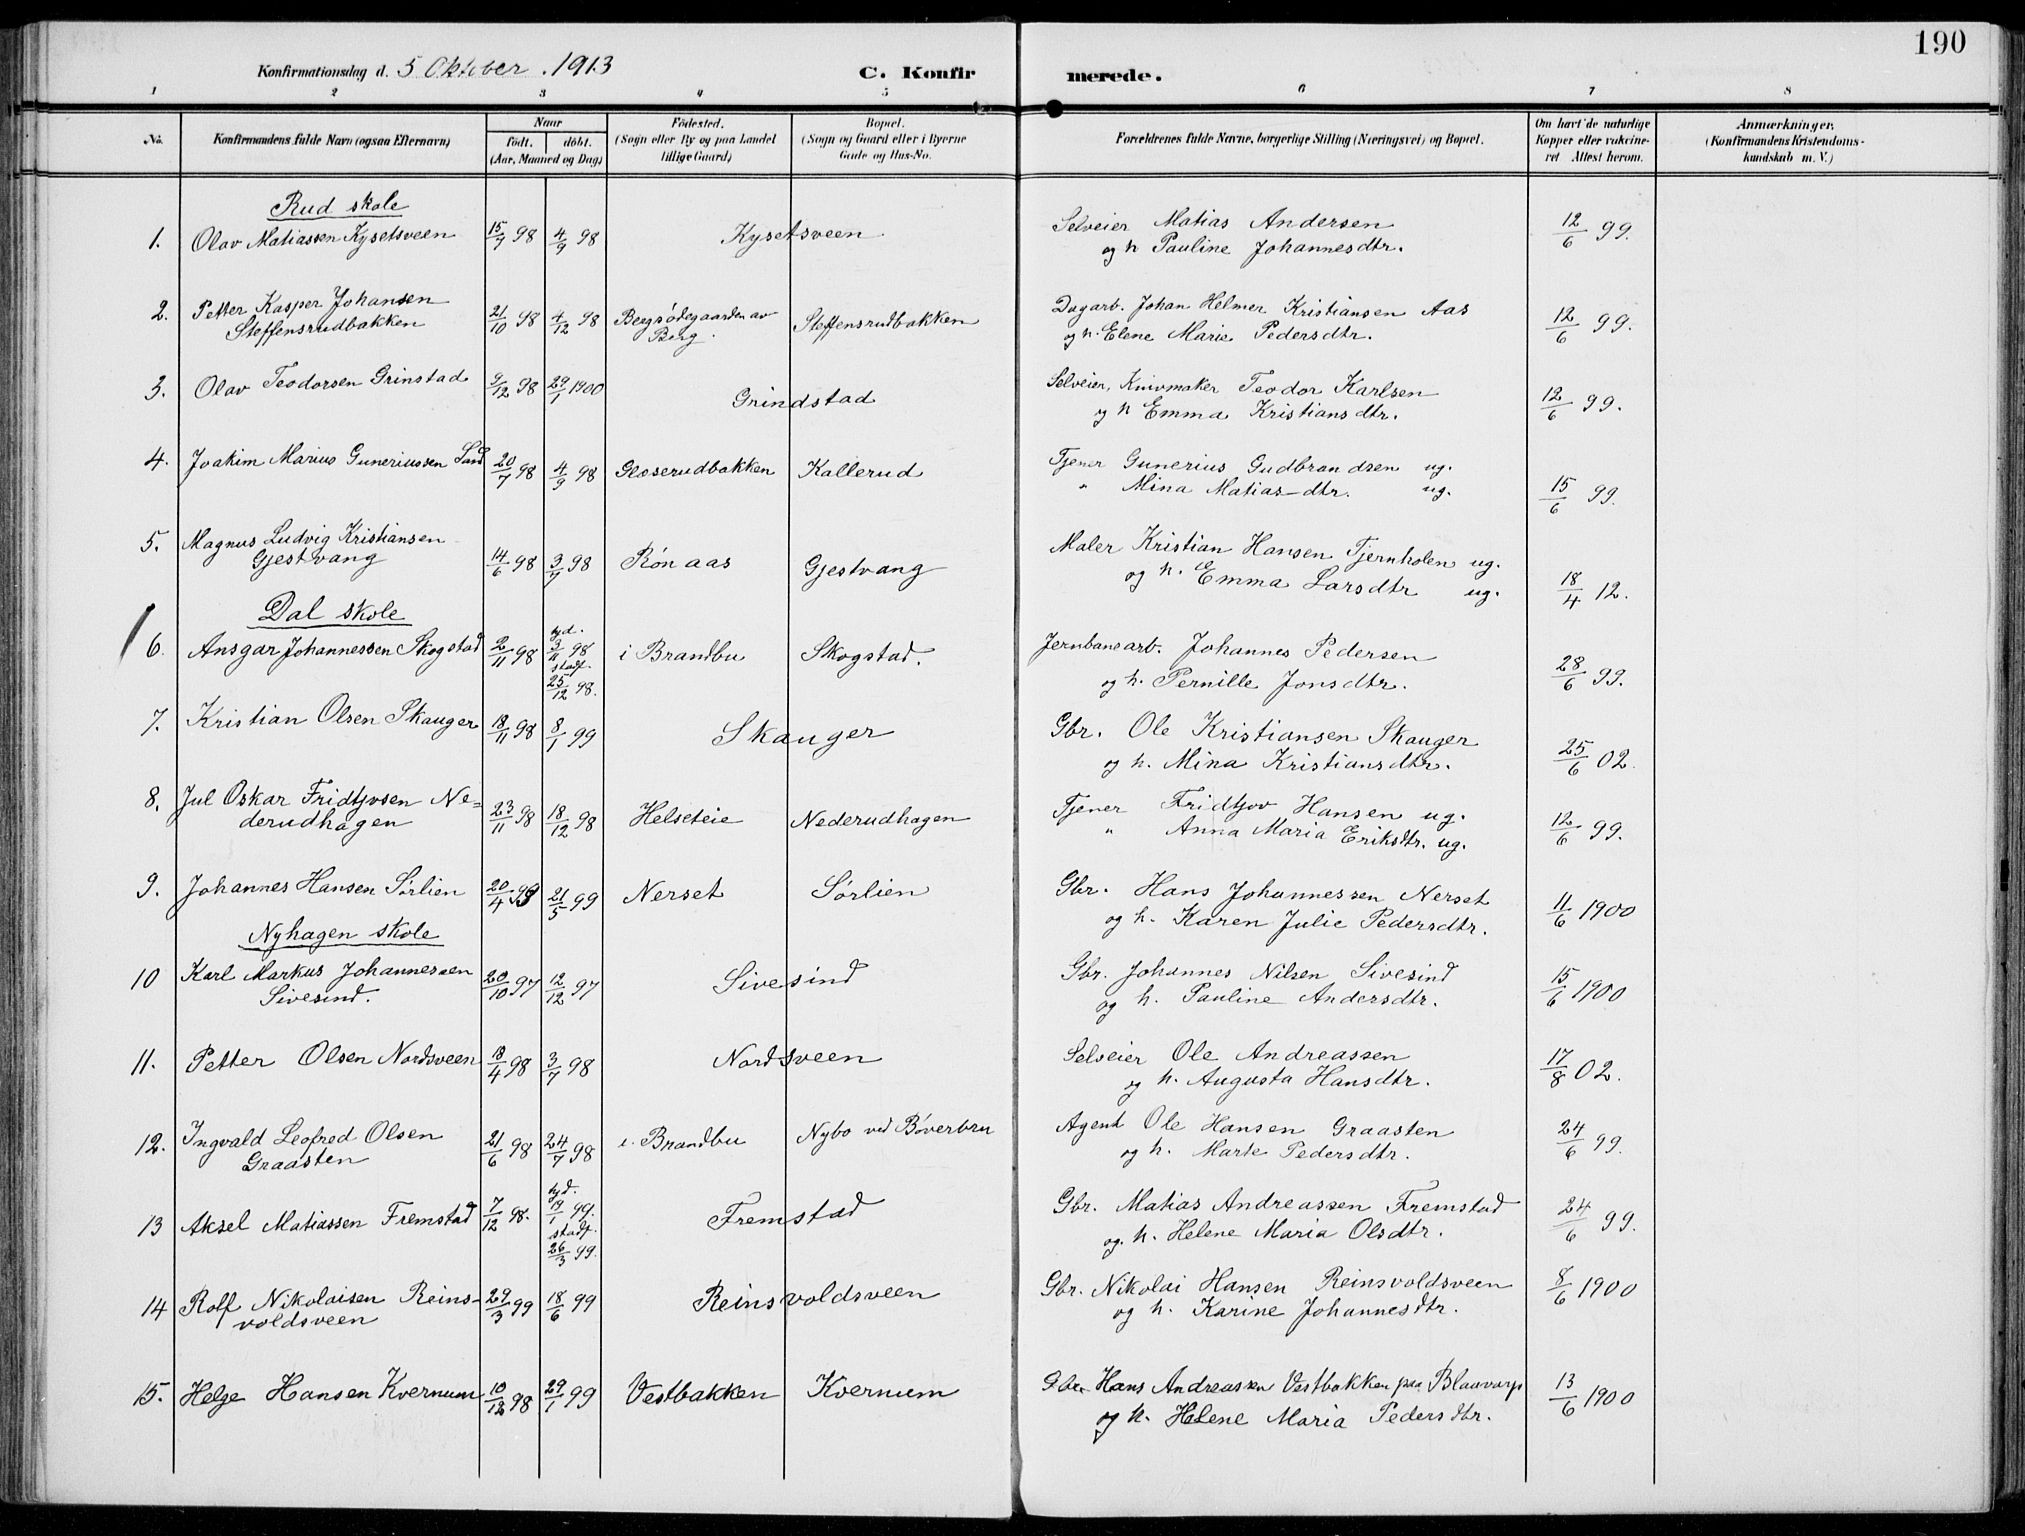 190
Konfirmationsdag d. 5 Oktober 1913 C. Konfirmerede.
1 2 3 4 5 6 7 8
No. Konfirmandens fulde Navn (ogsaa Efternavn) Naar født. døbt. (Aar, Maaned og Dag) Fødested. (Sogn eller By og paa Landet tillige Gaard) Bopæl. (Sogn og Gaard eller i Byerne Gade og Hus-No. Forældrenes fulde Navne, borgerlige Stilling (Næringsvei) og Bopæl. Om havt de naturlige Kopper eller vakcineret Attest herom. Anmærkninger. (Konfirmandens Kristendomskundskab m. V.)
Rud skole
1. Olav Matiassen Kysetsveen 15/7 98 4/9 98 Kysetsveen Selveier Matias Andersen 12/6 99.
og h Pauline Johannesdtr.
2. Petter Kasper Johansen 21/10 98 4/12 98 Bergsødegaarden av Steffensrudbakken Dagarb. Johan Helmer Kristiansen Aas 12/6 99.
Steffensrudbakken Berg. og h. Elene Marie Pedersdtr.
3. Olav Teodorsen Grinstad 9/12 98 29/1 1900 Grindstad Selveier, Knivmaker Teodor Karlsen 12/6 99.
og h Emma Kristiansdtr.
4. Joakim Marius Guneriussen Sand 20/7 98 4/9 98 Gloserudbakken Kallerud Tjener Gunerius Gudbrandsen ug.
" Mina Matias-dtr. ug. 15/6 99.
5. Magnus Ludvig Kristiansen 14/6 98 3/7 98 Rønaas Gjestvang Maler Kristian Hansen Tjernholen ug.
Gjestvang og h. Emma Larsdtr ug. 18/4 12.
Dal skole
6. Ansgar Johannessen Skogstad 2/11 98 hjd. 3/11 98 stadf. 25/12 98. i Brandbu Skogstad. Jernbanearb. Johannes Pedersen 28/6 99.
og h. Pernille Jonsdtr.
7. Kristian Olsen Skauger 18/11 98 8/1 99 Skauger Gbr. Ole Kristiansen Skauger 25/6 02.
og h. Mina Kristiansdtr.
8. Jul Oskar Fridtjvsen Ne= 23/11 98 18/12 98 Helseteie Nederudhagen Tjener Fridtjov Hansen ug. 12/6 99.
derudhagen " Anna Maria Eriksdtr. ug.
9. Johannes Hansen Sørlien 20/4 99 21/5 99 Nerset Sørlien Gbr. Hans Johannessen Nerset 11/6 1900
og h. Karen Julie Pedersdtr.
Nyhagen skole
10 Karl Markus Johannessen 20/10 97 12/12 97 Sivesind Gbr. Johannes Nilsen Sivesind 15/6 1900
Sivesind. og h. Pauline Andersdtr.
11. Petter Olsen Nordsveen 18/4 98 3/7 98 Nordsveen Selveier Ole Andreassen 17/8 02.
og h. Augusta Hansdtr.
12. Ingvald Leofred Olsen 21/6 98 24/7 98 i Brandbu Nybo ved Bøverbru Agent Ole Hansen Graasten 24/6 99.
Graasten og h. Marte Pedersdtr.
13 Aksel Matiassen Fremstad 7/12 98. hjd. 19/1 99. stadf. 26/3 99. Fremstad Gbr. Matias Andreassen Fremstad 24/6 99.
og. h. Helene Maria Olsdtr.
14 Rolf Nikolaisen Reins- 29/3 99 18/6 99 Reinsvoldsveen Gbr. Nikolai Hansen Reinsvoldsveen 8/6 1900
voldsveen og h. Karine Johannesdtr.
15. Helge Hansen Kvernum 10/12 98 29/1 99 Vestbakken Kvernum Gbr. Hans Andreassen Vestbakken paa Blaavarp 13/6 1900
og h. Helene Maria Pedersdtr.